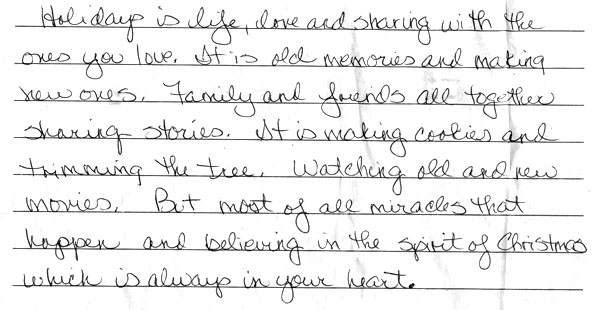 Holidays is life, love and sharing with the
ones you love. It is old memories and making
new ones. Family and friends all together
sharing stories. It is making cookies and
trimming the tree. Watching old and new
movies. But most of all miracles that
happen and believing in the spirit of Christmas
which is always in your heart.